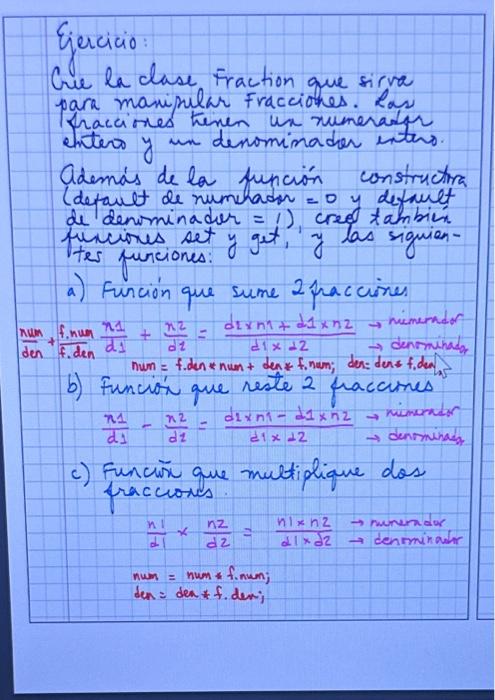 Ejercicio:
Cree la clase Fraction que sirva
para manipular fracciones. Las
fracciones tienen un numerador
entero y un denominador entero.
Además de la función constructora
(default de numerador = 0 y default
de denominador = 1), cree también
funciones set y get, y las siguien-
tes funciones:
a) Función que sume 2 fracciones
num/den + f.num/f.den n1/d1 + n2/d2 = d2xn1 + d1xn2 / d1 x d2 → numerador → denominador
num = f.den * num + den * f.num; den = den * f.den;
b) Función que reste 2 fracciones
n1/d1 - n2/d2 = d2xn1 - d1xn2 / d1 x d2 → numerador → denominador
c) Función que multiplique dos
fracciones.
n1/d1 x n2/d2 = n1 x n2 / d1 x d2 → numerador → denominador
num = num * f.num;
den = den * f.den;